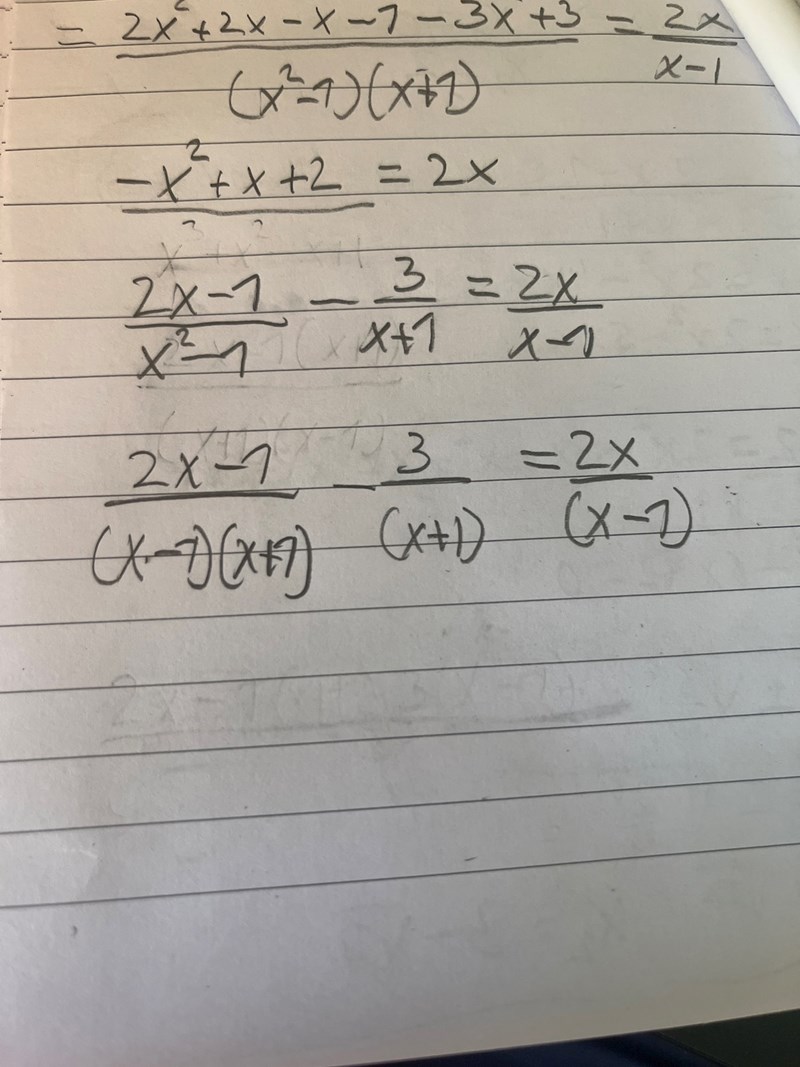 = (2x²+2x-x-1-3x²+3)/((x²-1)(x+1)) = 2x/(x-1)
-x²+x+2 = 2x
(2x-1)/(x²-1) - 3/(x+1) = 2x/(x-1)
(2x-1)/((x-1)(x+1)) - 3/(x+1) = 2x/(x-1)